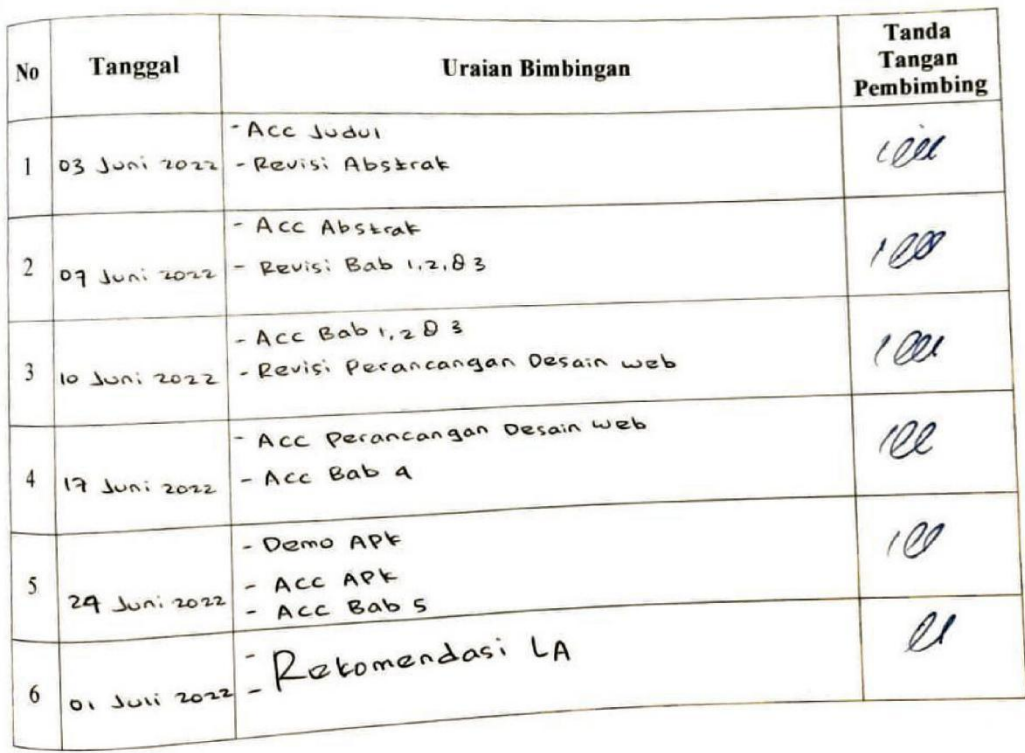 No Tanggal Uraian Bimbingan Tanda Tangan Pembimbing
1 03 Juni 2022 - Acc Judul
- Revisi Abstrak
2 07 Juni 2022 - Acc Abstrak
- Revisi Bab 1,2,& 3
3 10 Juni 2022 - Acc Bab 1,2 & 3
- Revisi Perancangan Desain web
4 17 Juni 2022 - Acc Perancangan Desain web
- Acc Bab 4
5 24 Juni 2022 - Demo APK
- Acc APK
- Acc Bab 5
6 01 Juli 2022 - Rekomendasi LA
-